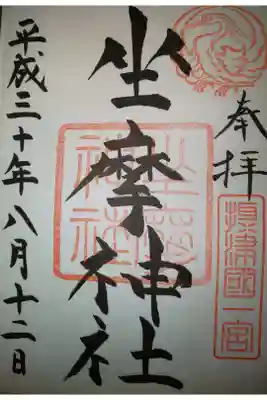 奉拝
摂津國一宮
坐摩神社
坐摩神社
平成三十年八月十二日